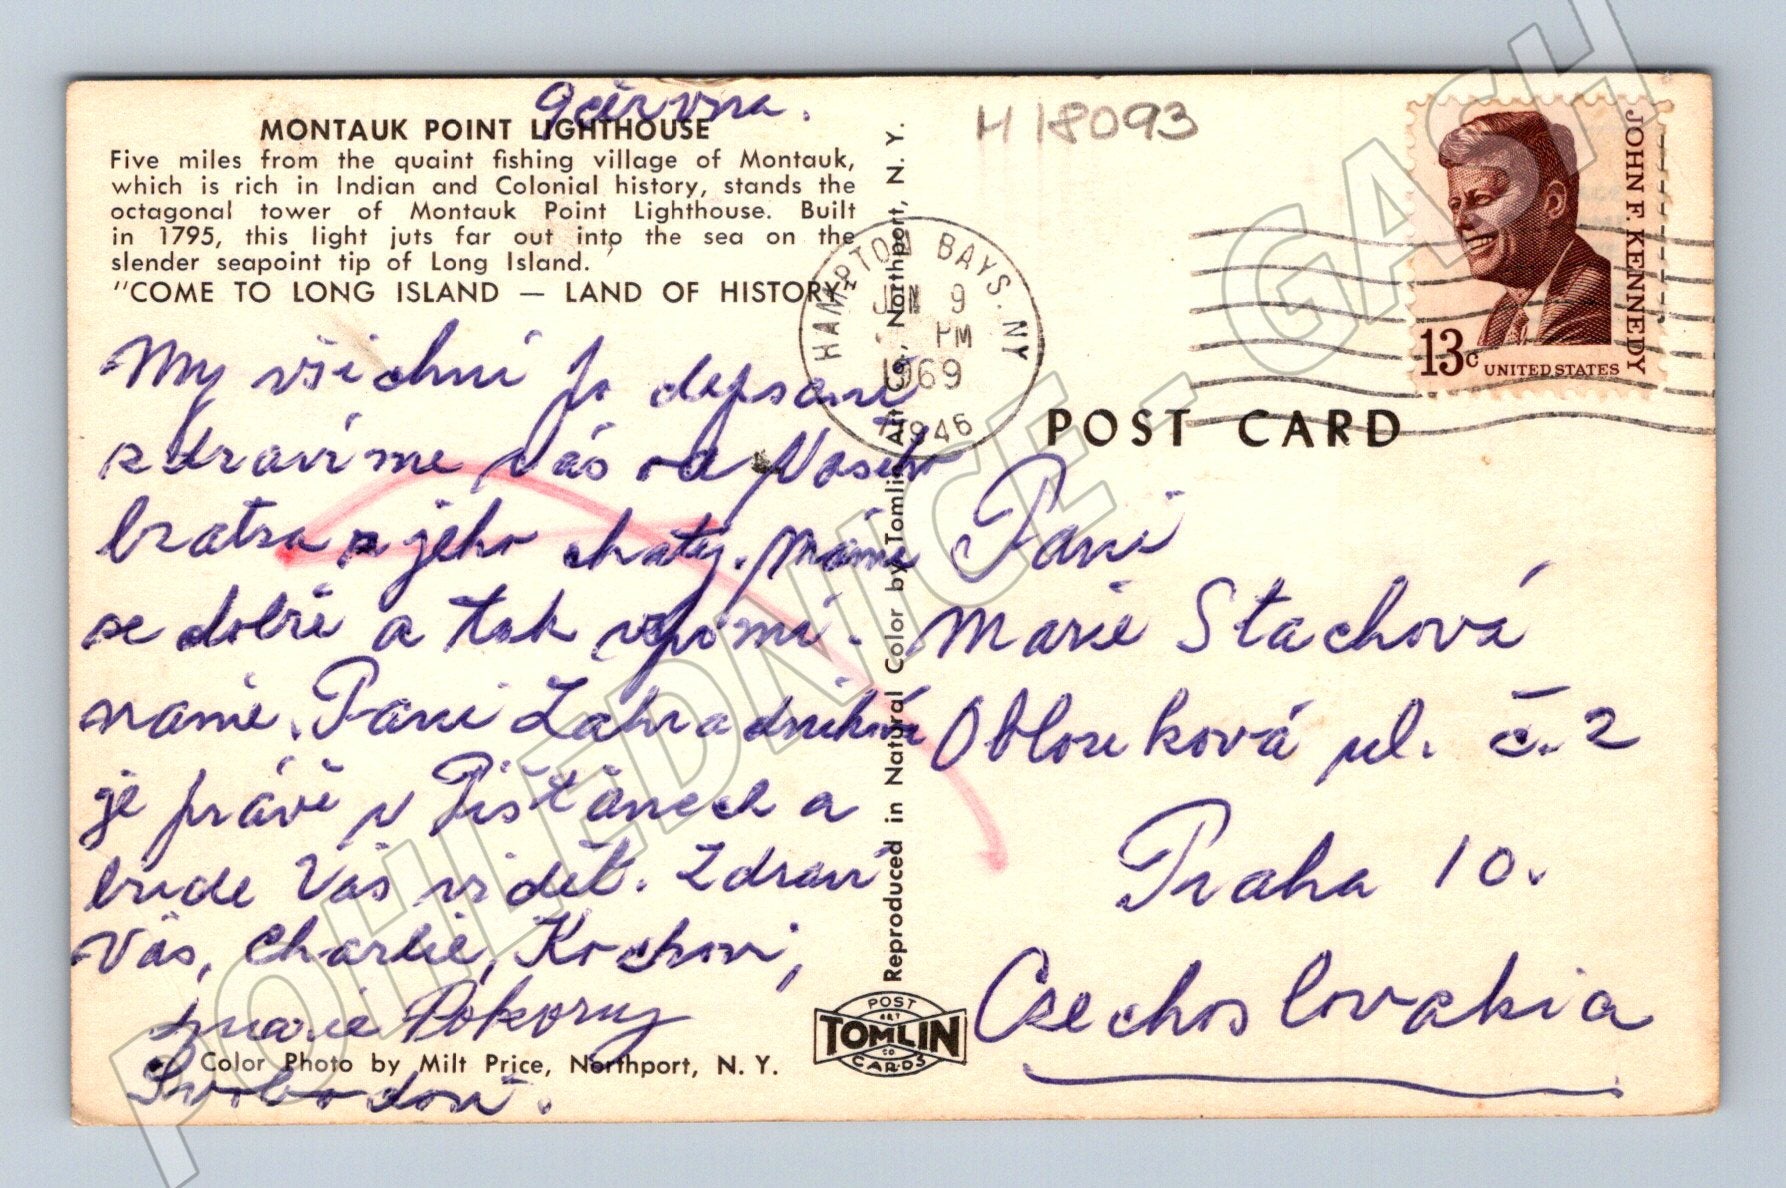 9 června.
MONTAUK POINT LIGHTHOUSE
Five miles from the quaint fishing village of Montauk,
which is rich in Indian and Colonial history, stands the
octagonal tower of Montauk Point Lighthouse. Built
in 1795, this light juts far out into the sea on the
slender seapoint tip of Long Island.
"COME TO LONG ISLAND — LAND OF HISTORY"
My všichni
zdravíme Vás od Vašeho
bratra z jeho chaty. Máme
se dobře a tak vzpomí-
náme. Paní Zahradníková
je právě v Píšťanech a
bude Vás vidět. Zdraví
Vás, Charlie, Kochovi,
Marie Pokorny
Svobodovi.
Color Photo by Milt Price, Northport, N. Y.
Reproduced in Natural Color by Tomlin Art Co., Northport, N. Y.
POST
ART
TOMLIN
CO
CARDS
H 18093
HAMPTON BAYS. NY
JUN 9
PM
1969
11946
JOHN F. KENNEDY
13c UNITED STATES
POST CARD
Paní
Marie Stachová
Oblouková ul. č. 2
Praha 10.
Czechoslovakia
POHLEDNICE - GASH